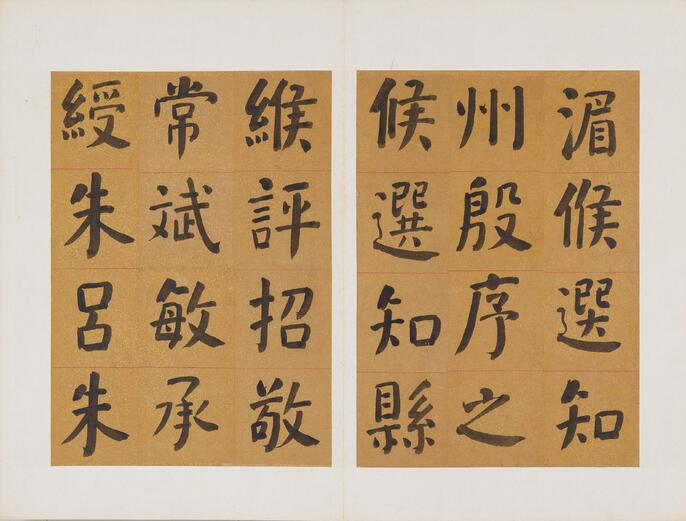 湄候選知
州殷序之
候選知縣
緱評招敬
常斌敏承
綬朱呂朱